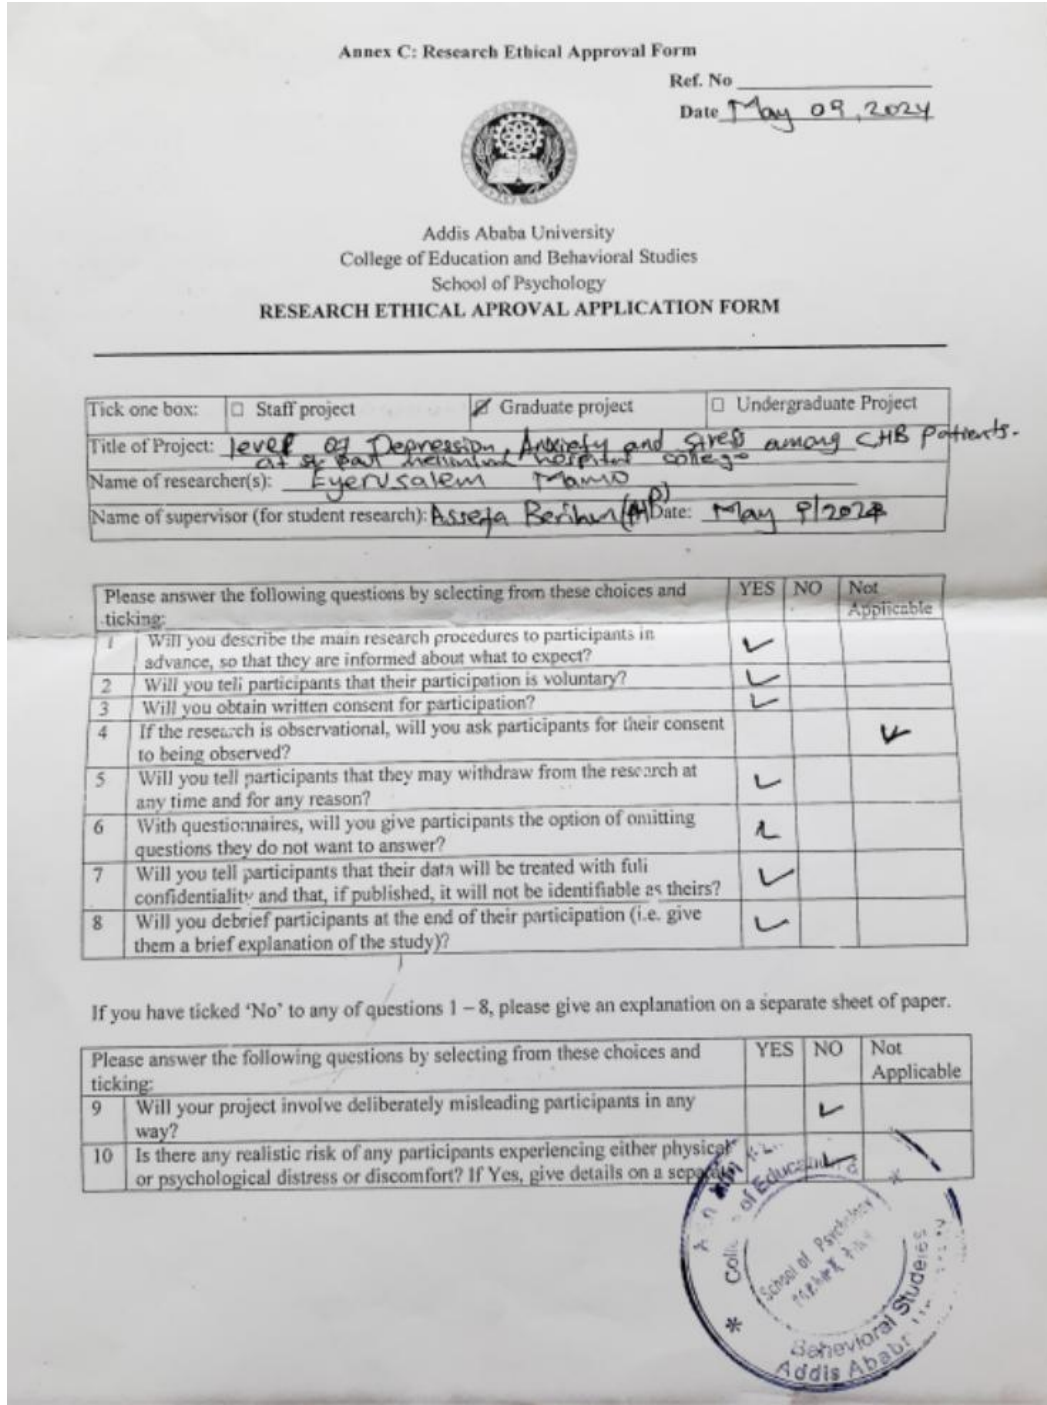 Annex C: Research Ethical Approval Form
Ref. No
Date May 09, 2024
Addis Ababa University
College of Education and Behavioral Studies
School of Psychology
RESEARCH ETHICAL APROVAL APPLICATION FORM
Tick one box: ☐ Staff project ☑ Graduate project ☐ Undergraduate Project
Title of Project: level of Depression, Anxiety and stress among CHB patients
at hospital college
Name of researcher(s): Eyerusalem Mamo
Name of supervisor (for student research): Assefa Berihun (PHD) Date: May 9/2024
Please answer the following questions by selecting from these choices and YES NO Not
ticking: Applicable
1 Will you describe the main research procedures to participants in
advance, so that they are informed about what to expect? ✓
2 Will you tell participants that their participation is voluntary? ✓
3 Will you obtain written consent for participation? ✓
4 If the research is observational, will you ask participants for their consent
to being observed? ✓
5 Will you tell participants that they may withdraw from the research at
any time and for any reason? ✓
6 With questionnaires, will you give participants the option of omitting
questions they do not want to answer? ✓
7 Will you tell participants that their data will be treated with full
confidentiality and that, if published, it will not be identifiable as theirs? ✓
8 Will you debrief participants at the end of their participation (i.e. give
them a brief explanation of the study)? ✓
If you have ticked ‘No’ to any of questions 1 – 8, please give an explanation on a separate sheet of paper.
Please answer the following questions by selecting from these choices and YES NO Not
ticking: Applicable
9 Will your project involve deliberately misleading participants in any
way? ✓
10 Is there any realistic risk of any participants experiencing either physical
or psychological distress or discomfort? If Yes, give details on a ✓
of Education
School of Psychology
Behavioral Studies
Addis